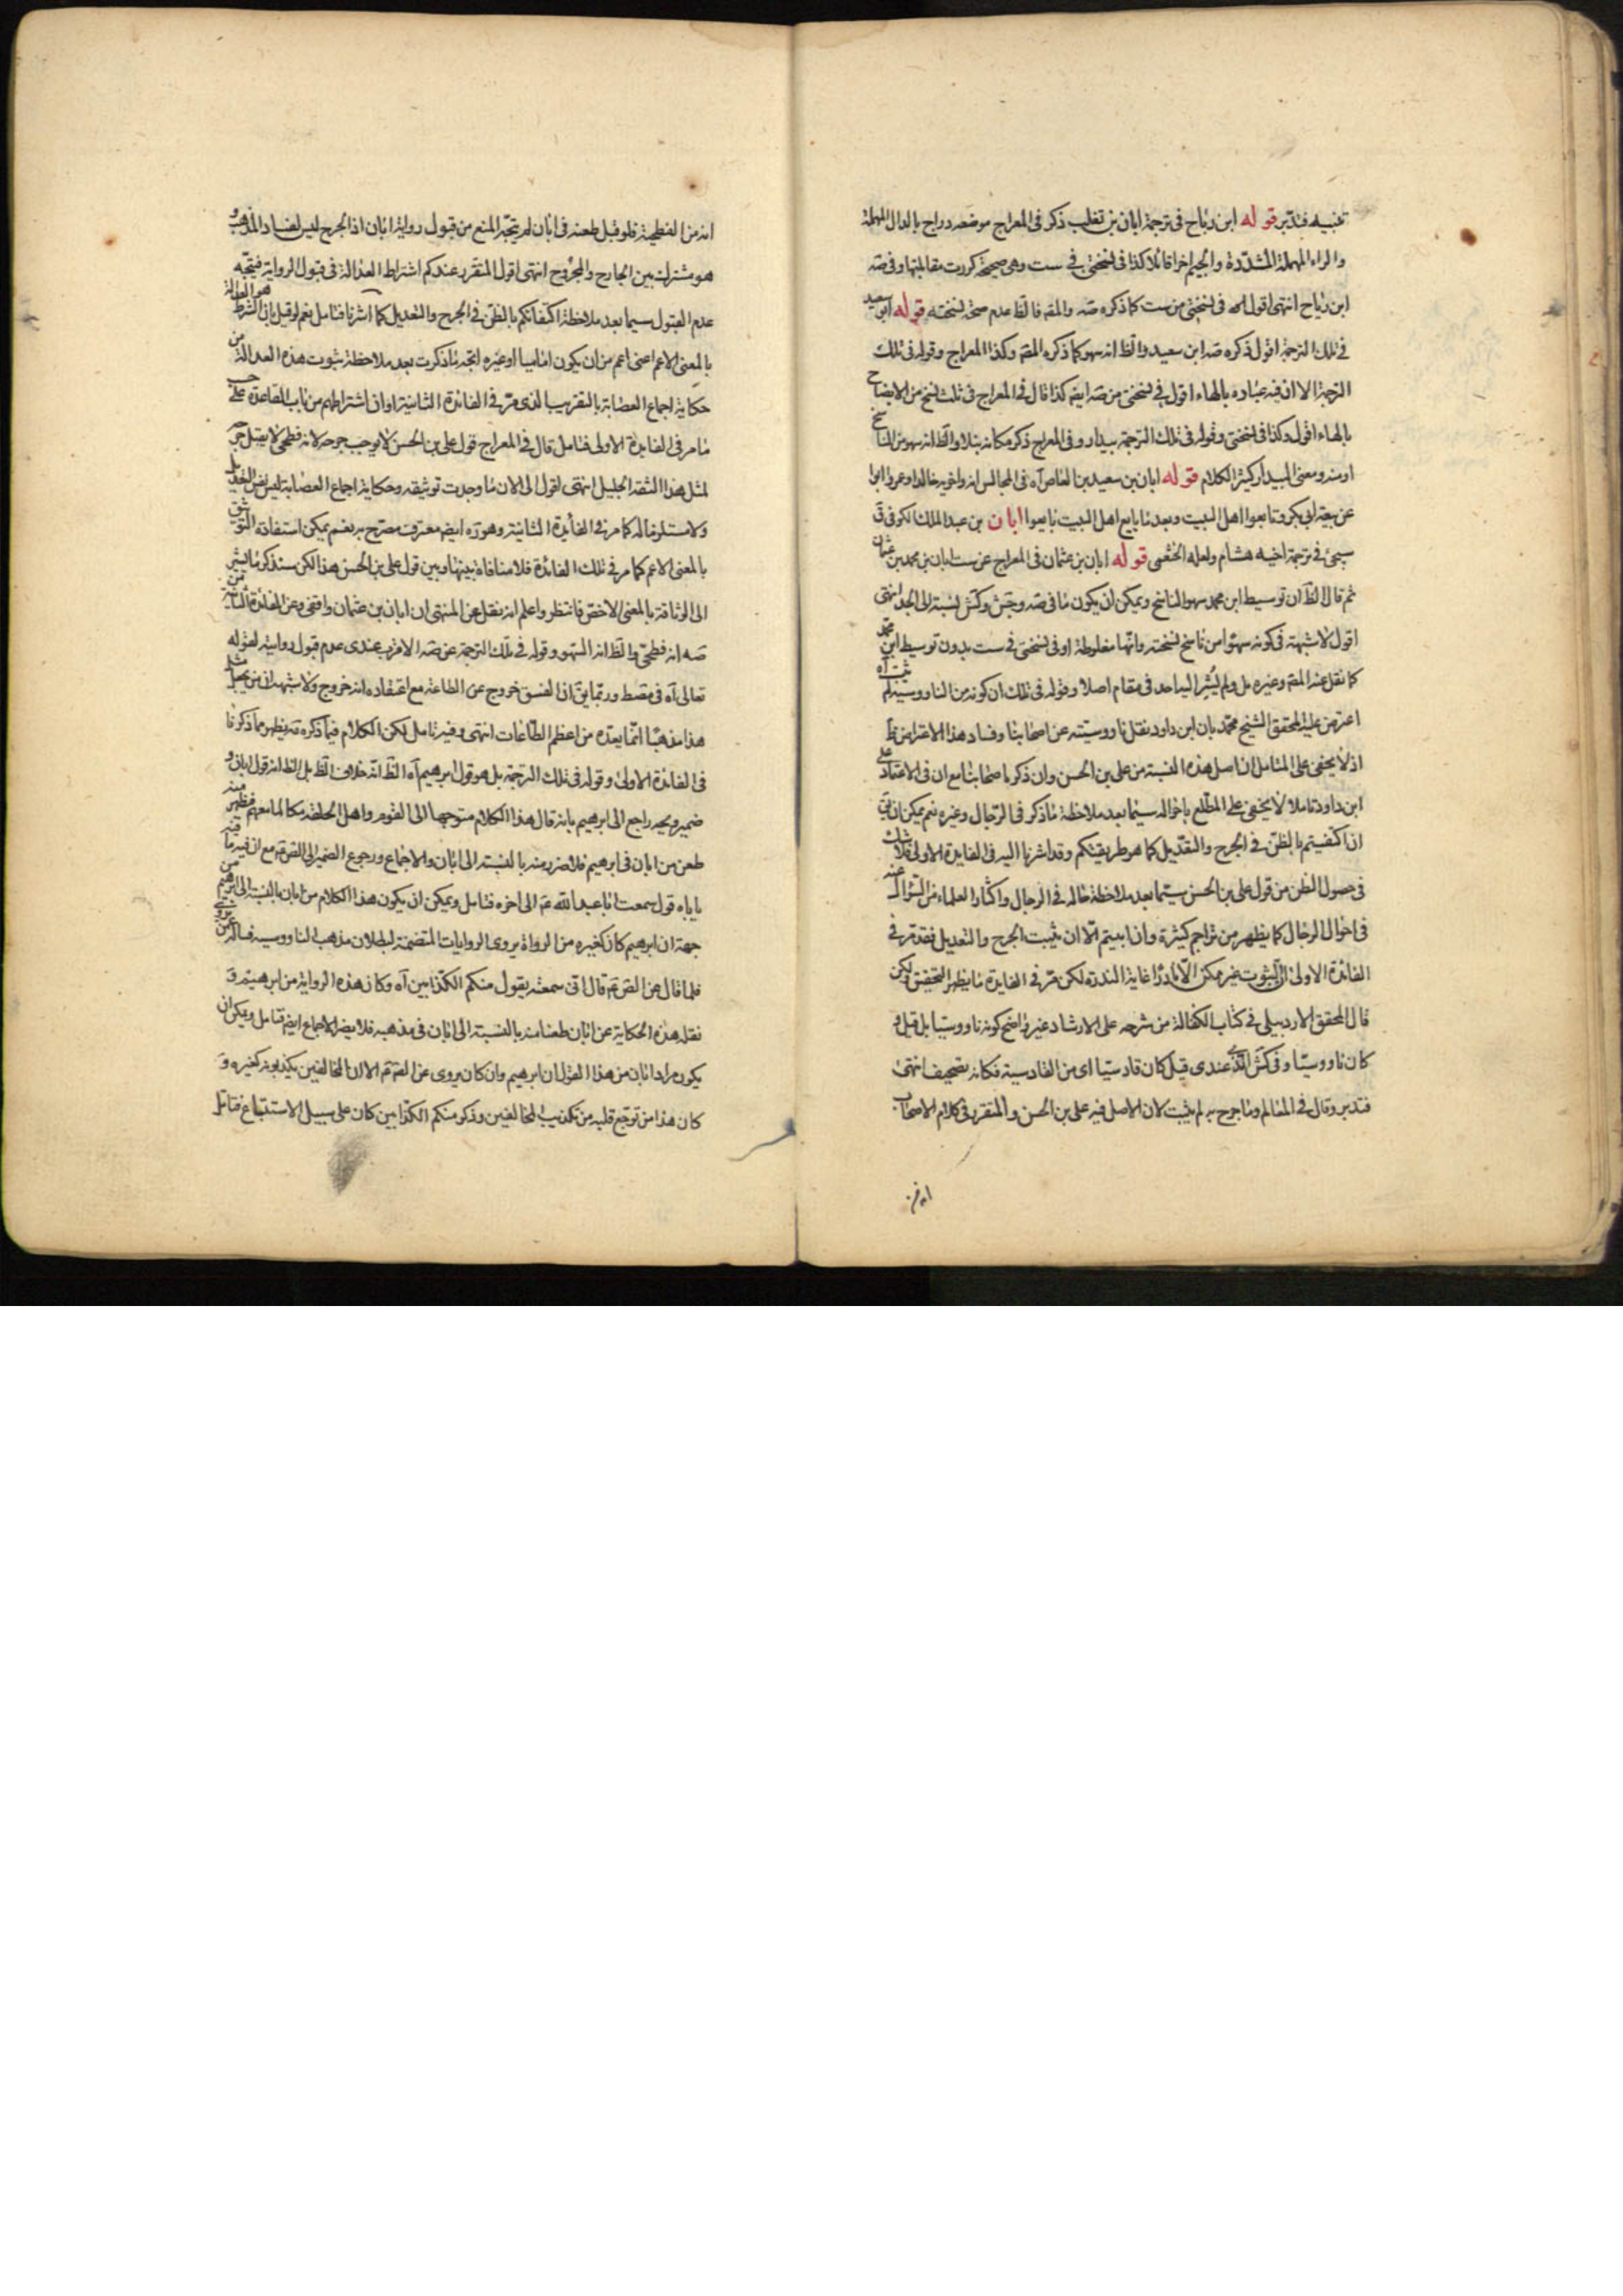 عنبسه فتدبر قوله ابن رباح في ترجمة ابان بن تغلب ذكر في المعراج موضعه دراج بالدال المهملة
والراء المهملة المشددة والجيم اخرا قائلا كذا في نسختي في ست وهى صحيحة كررت مقابلتها وفي صه
ابن رباح انتهى اقول في نسختي من ست كما ذكره صه والمص فالظ عدم صحة نسخته قوله ابن سعيد
في تلك الترجمة اقول ذكره صه ابن سعيد والظ انه سهو كما ذكره المص وكذا المعراج وقوله في تلك
الترجمة الا ان فيه عباده بالهاء اقول في نسختي من صه ايضا كذا قال في المعراج في ثلث نسخ من الايضاح
بالهاء اقول وكذا في نسختي وقوله في تلك الترجمة بيدار وفي المعراج ذكر مكانه بندار والظ انه سهو من الناسخ
او منه ومعنى البيدار كثير الكلام قوله ابان بن سعيد بن العاص آه في المجالس انه واخويه خالدا وعمروا ابوا
عن بيعة ابي بكر وتابعوا اهل البيت وبعد ما بايع اهل البيت بايعوا ابان بن عبد الملك الكوفي ق
سيجئ في ترجمة اخيه هشام ولعله الخثعمى قوله ابان بن عثمان في المعراج عن ست ابان بن محمد بن عثمان
ثم قال الظ ان توسيط ابن محمد سهو الناسخ ويمكن ان يكون ما في صه وجش وكش نسبة الى الجد انتهى
اقول لا شبهة في كونه سهوا من ناسخ نسخته وانها مغلوطة او في نسختي في ست بدون توسيط ابن محمد
كما نقل عنه المص وغيره بل ولم يشر اليه احد في مقام اصلا وقوله في تلك ان كونه من الناووسية لم يثبت آه
اعترض عليه المحقق الشيخ محمد بان ابن داود نقل ناووسيته عن اصحابنا وفساد هذا الاعتراض ظ
اذ لا يخفى على المتامل ان اصل هذه النسبة من على بن الحسن وان ذكر ما صحابنا مع ان في الاعتماد على
ابن داود تاملا لا يخفى على المطلع باحواله سيما بعد ملاحظة ما ذكر في الرجال وغيره نعم يمكن ان يق
اذا اكتفيتم بالظن في الجرح والتعديل كما هو طريقتكم وقد اشرنا اليه في الفايدة الاولى فلا شك
في حصول الظن من قول على بن الحسن سيما بعد ملاحظة حاله في الرجال واكثار العلماء من السؤال عنه
في احوال الرجال كما يظهر من تراجم كثيرة وان ابيتم الا ان يثبت الجرح والتعديل فقد مر في
الفائدة الاولى ان الثبوت غير ممكن الا نادرا غاية الندرة لكن مر في الفايدة ما يظهر التحقيق ولكن
قال المحقق الاردبيلى في كتاب الكفالة من شرحه على الارشاد غير واضح كونه ناووسيا بل قيل و
كان ناووسيا وفي كش الذى عندى قيل كان قادسيا اى من القادسية فكانه تصحيف انتهى
فتدبر وقال في المعالم وما جرح به لم يثبت لان الاصل فيه على بن الحسن والمتقرر في كلام الاصحاب
انه من
انه من الفطحية فلو قبل طعنه في ابان لم يتجه المنع من قبول رواية ابان اذ الجرح ليس لفساد المذهب و
هو مشترك بين الجارح والمجروح انتهى اقول المتقرر عندكم اشتراط العدالة في قبول الرواية فيتجه
عدم القبول سيما بعد ملاحظة اكتفائكم بالظن في الجرح والتعديل كما اشرنا فتامل نعم لو قيل بان الشرط هو العدالة
بالمعنى الاعم اعنى اعم من ان يكون اماميا او غيره اتجه ما ذكرت بعد ملاحظة ثبوت هذه العدالة من
حكاية اجماع العصابة بالتقريب الذى مر في الفائدة الثانية او ان اشتراطهم من باب القاعدة على حسب
ما مر في الفايدة الاولى فتامل قال في المعراج قول على بن الحسن لا يوجب جرحه لانه فطحى لا يقبل جرحه
لمثل هذا الثقة الجليل انتهى اقول الى الان ما وجدت توثيقه وحكاية اجماع العصابة ليس نفس التعديل
ولا مستلزما له كما مر في الفائدة الثانية وهو ره ايضا معترف مصرح به نعم يمكن استفادة التوثيق
بالمعنى الاعم كما مر في تلك الفائدة فلا منافاة بينها وبين قول على بن الحسن هذا لكن سنذكر ما يشير
الى الوثاقة بالمعنى الاخص فانتظر واعلم انه نقل عن المنتهى ان ابان بن عثمان واقفى وعن الفائدة الثامنة من
صه انه فطحى والظ انه السهو وقوله في تلك الترجمة عن صه الاقرب عندى عدم قبول روايته لقوله
تعالى آه فيه مقسط وربما يق ان الفسق خروج عن الطاعة مع اعتقاده انه خروج ولا شبهة ان من يجعل مثل
هذا مذهبا انما يعده من اعظم الطاعات انتهى وفيه تامل لكن الكلام فيما ذكره صه يظهر مما ذكرنا
في الفائدة الاولى وقوله في تلك الترجمة بل هو قول ابرهيم آه الظ انه خلاف الظ بل الظ انه قول ابان و
ضمير وبحه راجع الى ابرهيم بانه قال هذا الكلام متوجها الى القوم واهل الحلقة مكالما معهم فظهر منه
طعن من ابان في ابرهيم فلا ضرر منه بالنسبة الى ابان والاجماع ورجوع الضمير الى الص ع مع ان فيه ما فيه
ياباه قول سمعت ابا عبد الله ع الى اخره فتامل ويمكن ان يكون هذا الكلام من ابان بالنسبة الى ابرهيم من
جهة ان ابرهيم كان كغيره من الرواة يروى الروايات المتضمنة لبطلان مذهب الناووسية
فلما قال عن الص ع قال انى سمعته يقول منكم الكذابين آه وكان هذه الرواية من ابرهيم و
نقله هذه الحكاية عن ابان طعنا منه بالنسبة الى ابان في مذهبه فلا يضر الاجماع ايضا فتامل ويمكن ان
يكون مراد ابان من هذا القول ان ابرهيم وان كان يروى عن الص ع الا ان المخالفين يكذبونه كغيره و
كان هذا من توجع قلبه من تكذيب المخالفين وذكر منكم الكذابين كان على سبيل الاستتباع فتامل